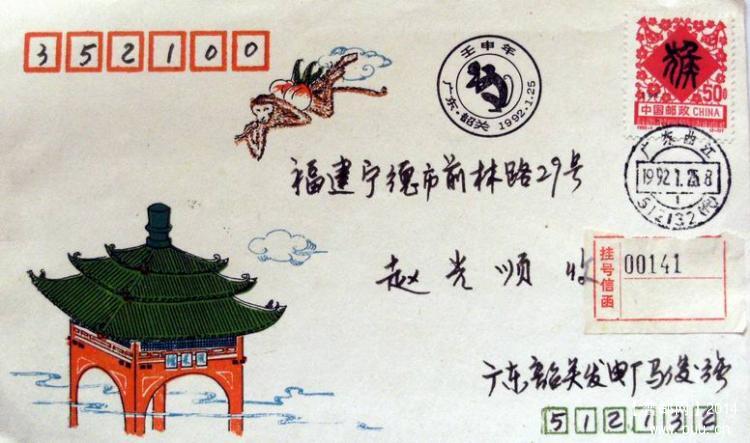 352100
壬申年
广东·韶关 1992.1.25
猴
50分
中国邮政 CHINA
广东曲江
1992.1.25.8
1
512132(电)
福建宁德市前林路29号
赵光顺 收
挂号信函
00141
广东韶关发电厂马俊强
512132
2014